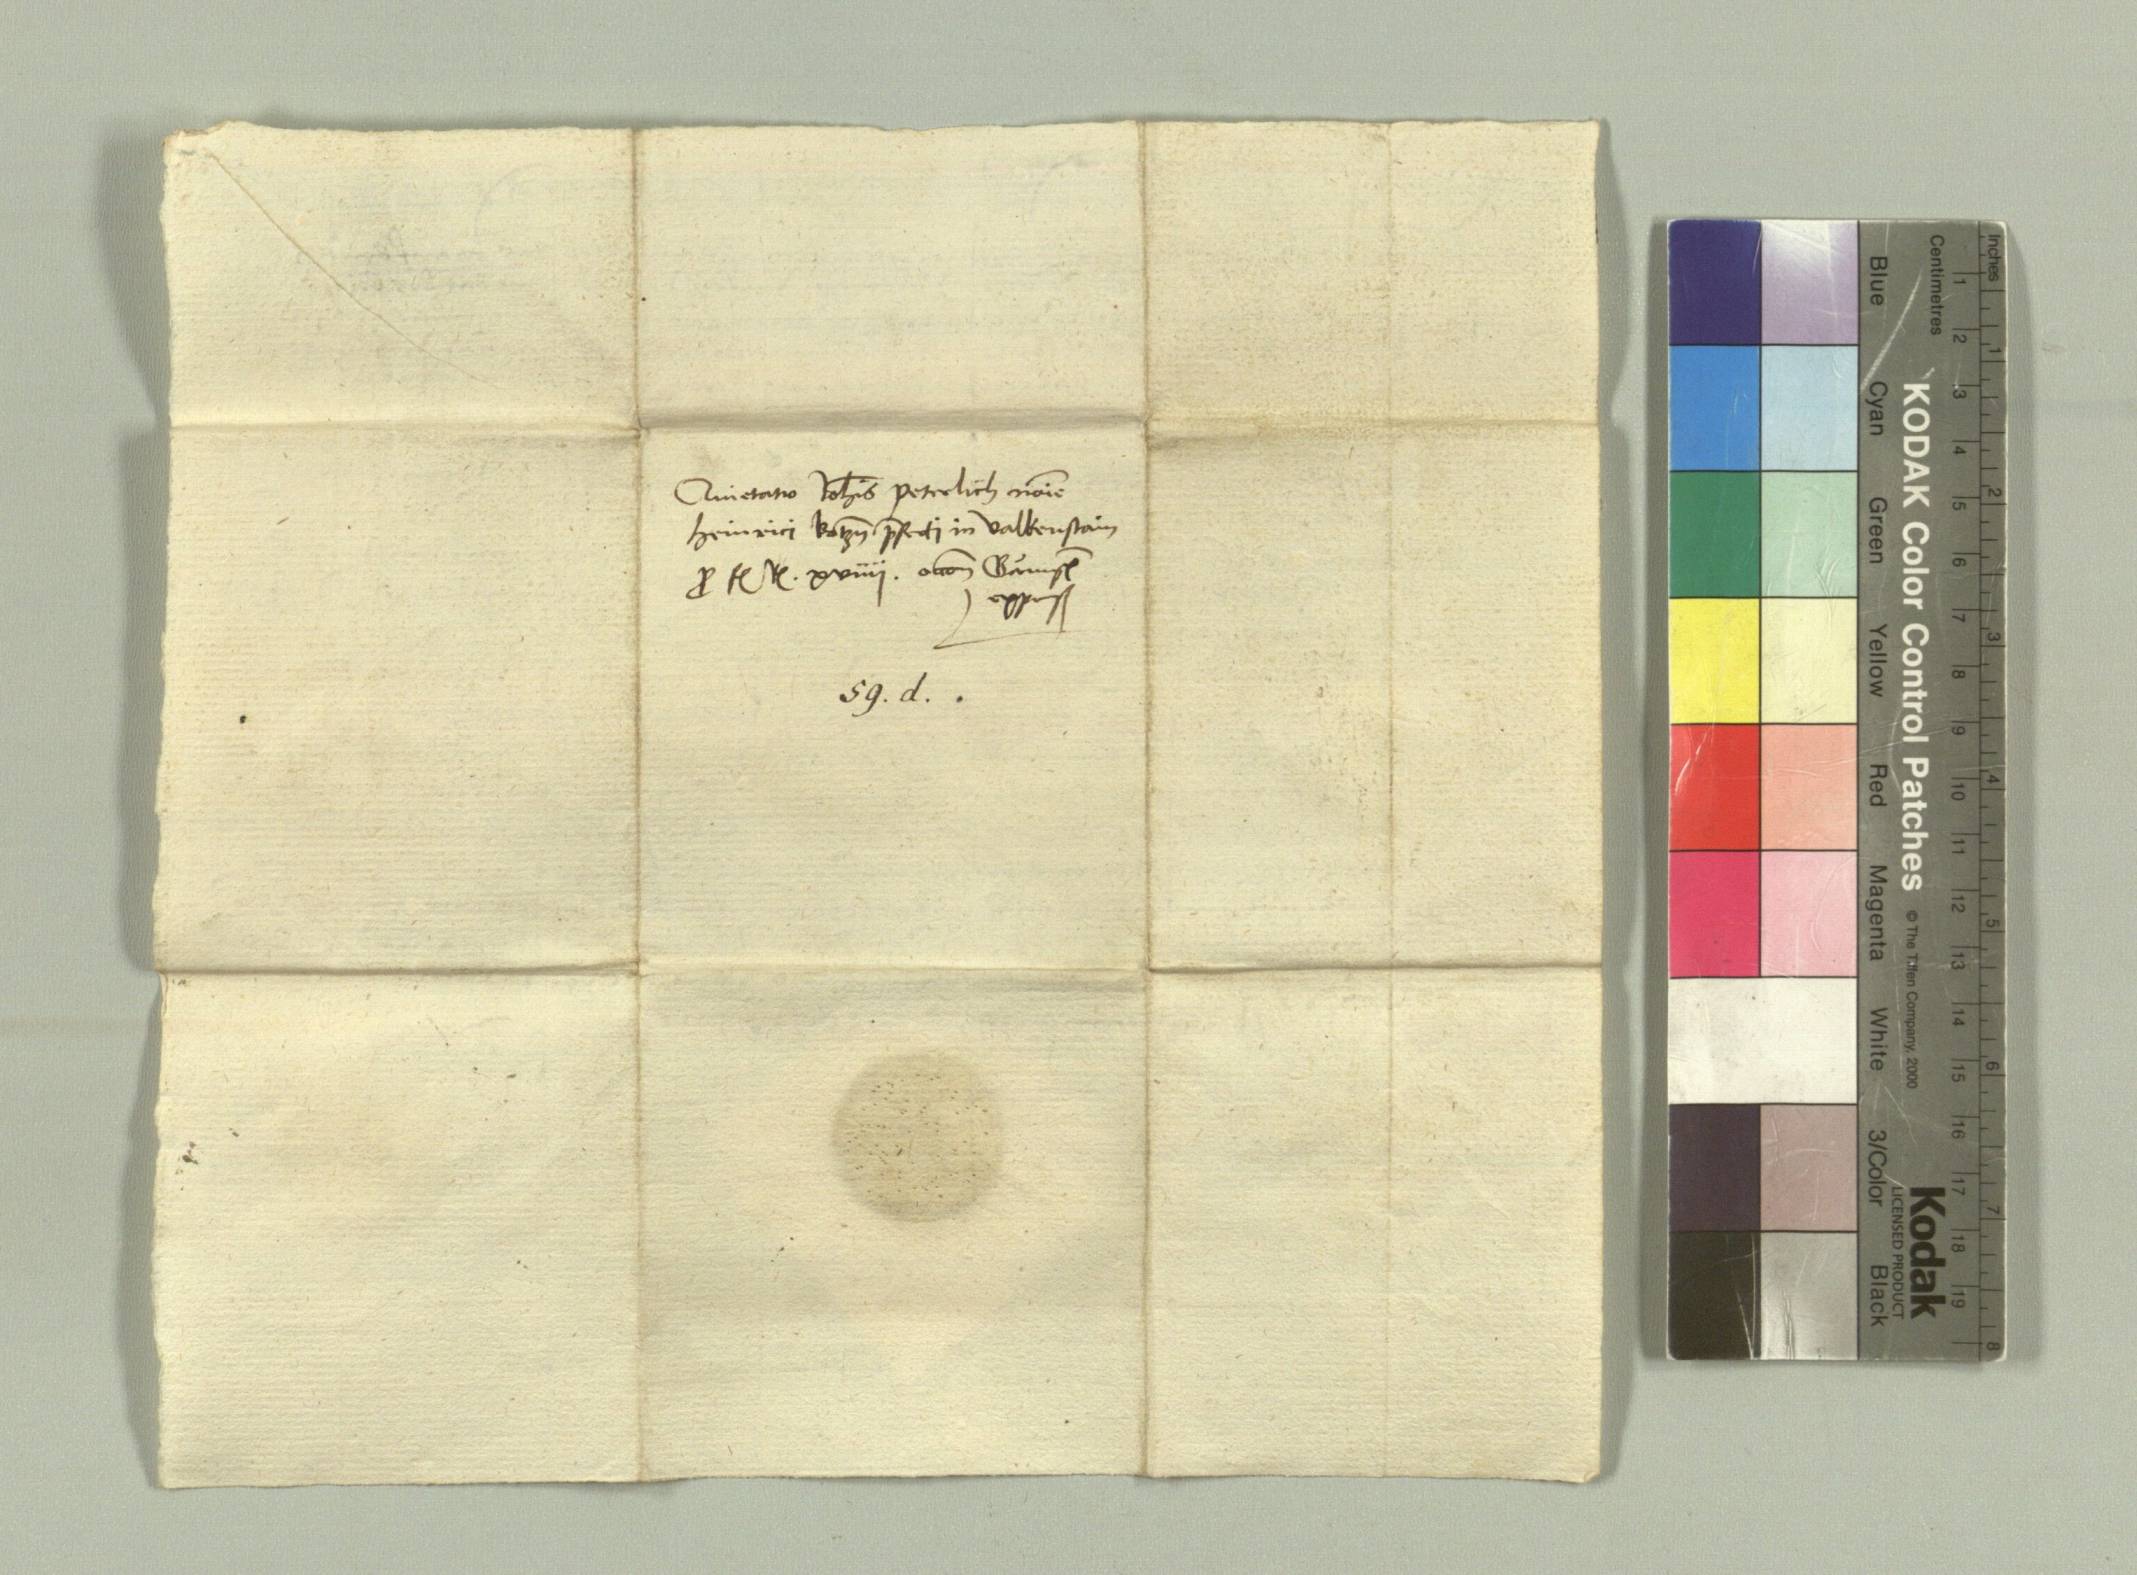 Quietatio Joh̄is peterlich no͞ie
heinrici kotzn̄ p̄fecti in valkenstain
fl xviiij. Gamsſ
expensſ
59. d. .
Inches
Centimetres
1 2 3 4 5 6 7 8
1 2 3 4 5 6 7 8 9 10 11 12 13 14 15 16 17 18 19
KODAK Color Control Patches
© The Tiffen Company, 2000
Kodak
LICENSED PRODUCT
Blue Cyan Green Yellow Red Magenta White 3/Color Black